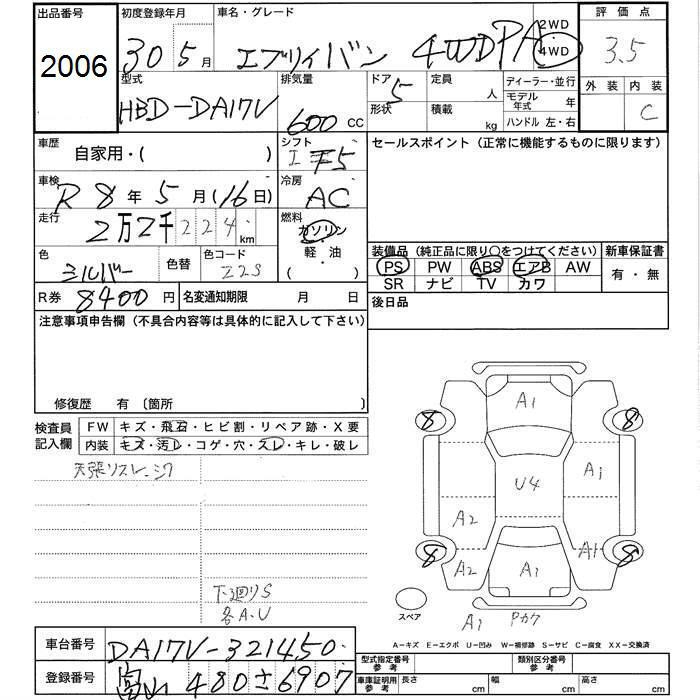 出品番号 初度登録年月 車名・グレード 評価点
2006 30 年 5 月 エブリイバン 4WDPA 2WD 4WD 3.5
型式 排気量 ドア 定員 ディーラー・並行 外装 内装
HBD-DA17V 600 CC 5 形状 人 積載 kg モデル年式 年 ハンドル 左・右 C
車歴 自家用・( ) シフト F5 セールスポイント (正常に機能するものに限ります)
車検 R 8 年 5 月 (16 日) 冷房 AC
走行 2万2千224 km 燃料 ガソリン・軽・油 ( )
色 シルバー 色替 色コード Z2S
装備品 (純正品に限り○をつけてください) 新車保証書
PS PW ABS エアB AW 有・無
SR ナビ TV カワ
R券 8400 円 名変通知期限 月 日 後日品
注意事項申告欄 (不具合内容等は具体的に記入して下さい)
修復歴 有 (箇所
検査員記入欄 FW キズ・飛石・ヒビ割・リペア跡・X要
内装 キズ・汚レ・コゲ・穴・スレ・キレ・破レ
天張リスレ、シワ
下廻りS
各A.U
A1
8 8
U4 A1
A2 A1
8 8
A2 A1
スペア A1 Pカケ
A=キズ E=エクボ U=凹み W=補修跡 S=サビ C=腐食 XX=交換済
車台番号 DA17V-321450
登録番号 富山 480 さ 6907
型式指定番号 参考 類別区分番号 参考
車庫証明用 参考 長さ cm 幅 cm 高さ cm